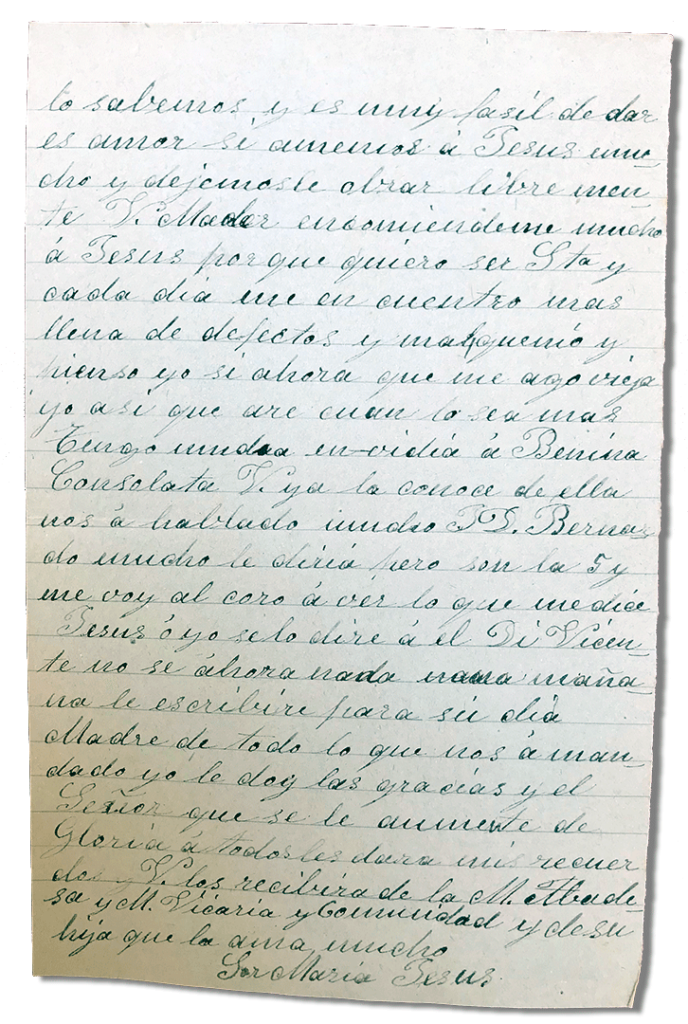 lo sabemos y es muy fasil de dar
es amor si amemos á Jesus mu-
cho y dejemosle obrar libre men-
te V. Mader encomiendeme mucho
á Jesus porque quiero ser Sta y
cada dia me en cuentro mas
llena de defectos y mal y
pienso yo si ahora que me ago vieja
yo asi que are cuan lo sea mas
Tengo mucha en-vidia á Benina
Consolata V. ya la conoce de ella
nos á hablado mucho P. D. Bernar-
do mucho le diria pero son la 5 y
me voy al coro á ver lo que me dice
Jesus ó yo selo dire á el Di Vicen-
te no se áhora nada maña-
na le escribire para su dia
Madre de todo lo que nos á man-
dado yo le doy las gracias y el
Señor que se le aumente de
Gloria á todos les dara mis recuer
dos y V. los recibira de la M. Abade-
sa y M. Vicaria y Comunidad y de su
hija que la ama mucho
Sor Maria Jesus